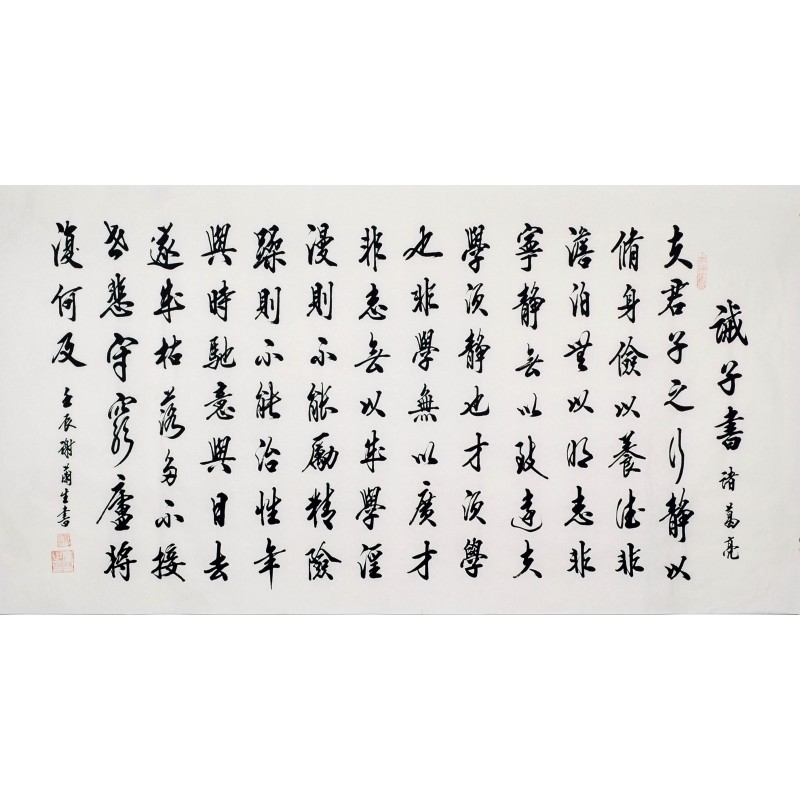 誡子書 諸葛亮
夫君子之行靜以
脩身儉以養德非
澹泊無以明志非
寧靜無以致遠夫
學須靜也才須學
也非學無以廣才
非志無以成學淫
漫則不能勵精險
躁則不能治性年
與時馳意與日去
遂成枯落多不接
世悲守窮廬將
復何及
壬辰謝蘭生書